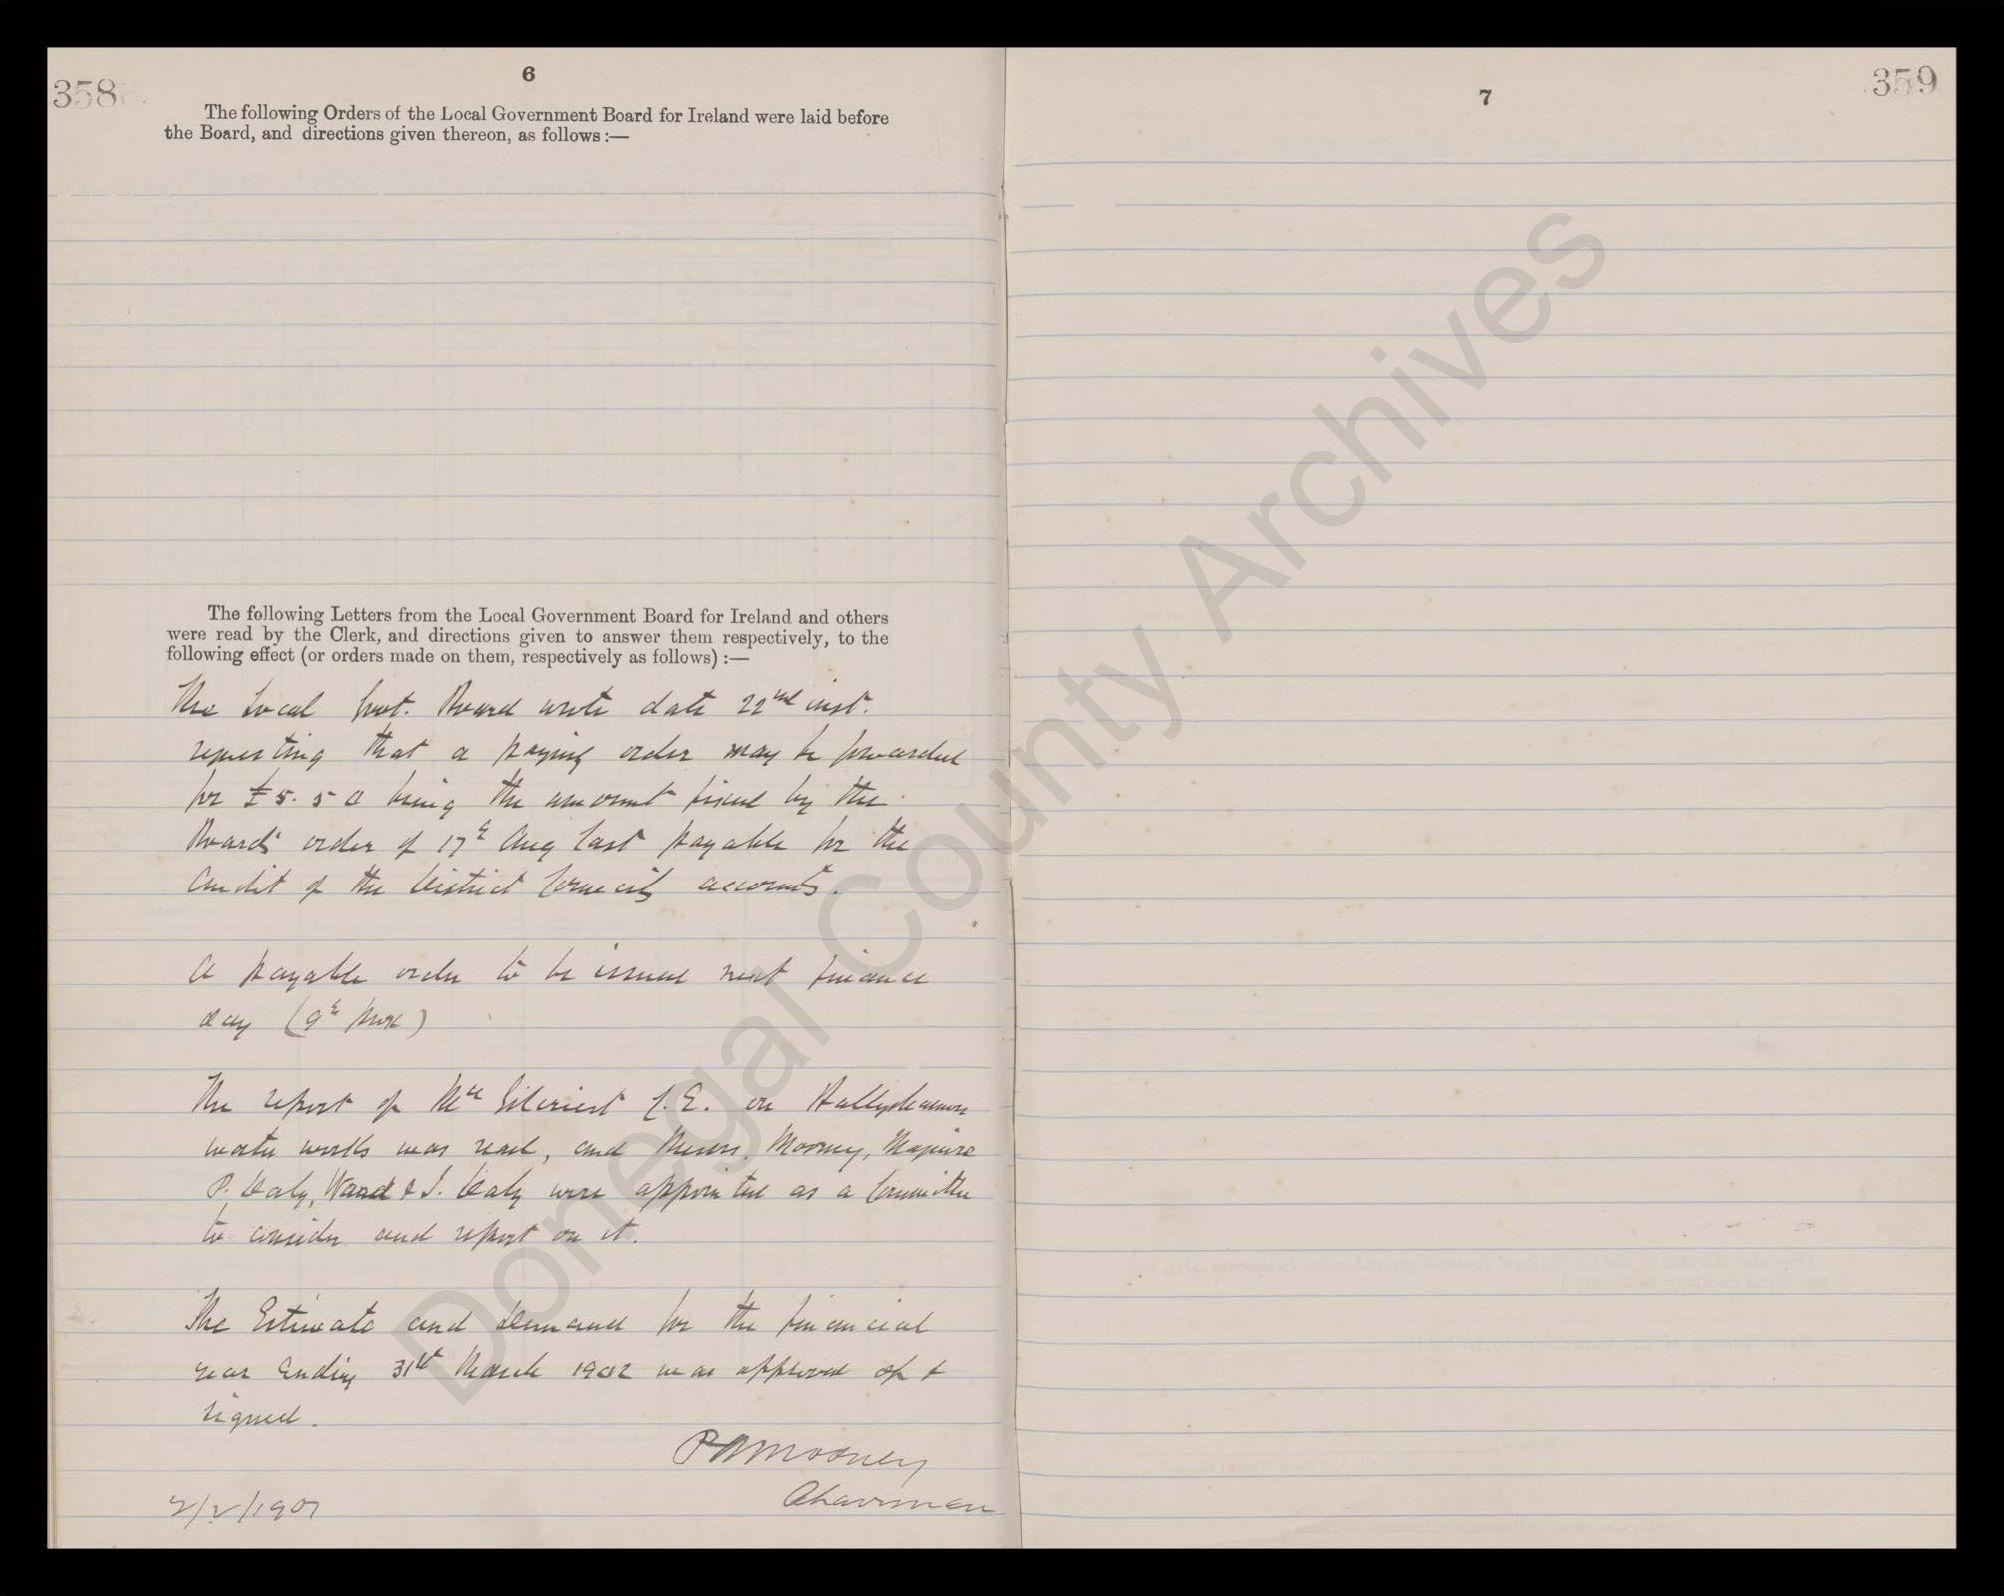 358
6
The following Orders of the Local Government Board for Ireland were laid before
the Board, and directions given thereon, as follows :—
The following Letters from the Local Government Board for Ireland and others
were read by the Clerk, and directions given to answer them respectively, to the
following effect (or orders made on them, respectively as follows) :—
The Local Govt. Board wrote date 22nd inst.
requesting that a paying order may be forwarded
for £5. 5 0 being the amount fixed by the
Boards order of 17th Aug last payable for the
Audit of the District Councils accounts.
A payable order to be issued next finance
day (9th prox)
The report of Mr Gilcriest C.E. on Ballyshannon
water works was read, and Messrs. Mooney, Maguire
P. Daly, Ward & J. Daly were appointed as a Committee
to consider and report on it.
The Estimate and Demand for the financial
year ending 31st March 1902 was approved of &
signed.
P Mooney
Chairman
/2/1901
7
359
Donegal County Archives